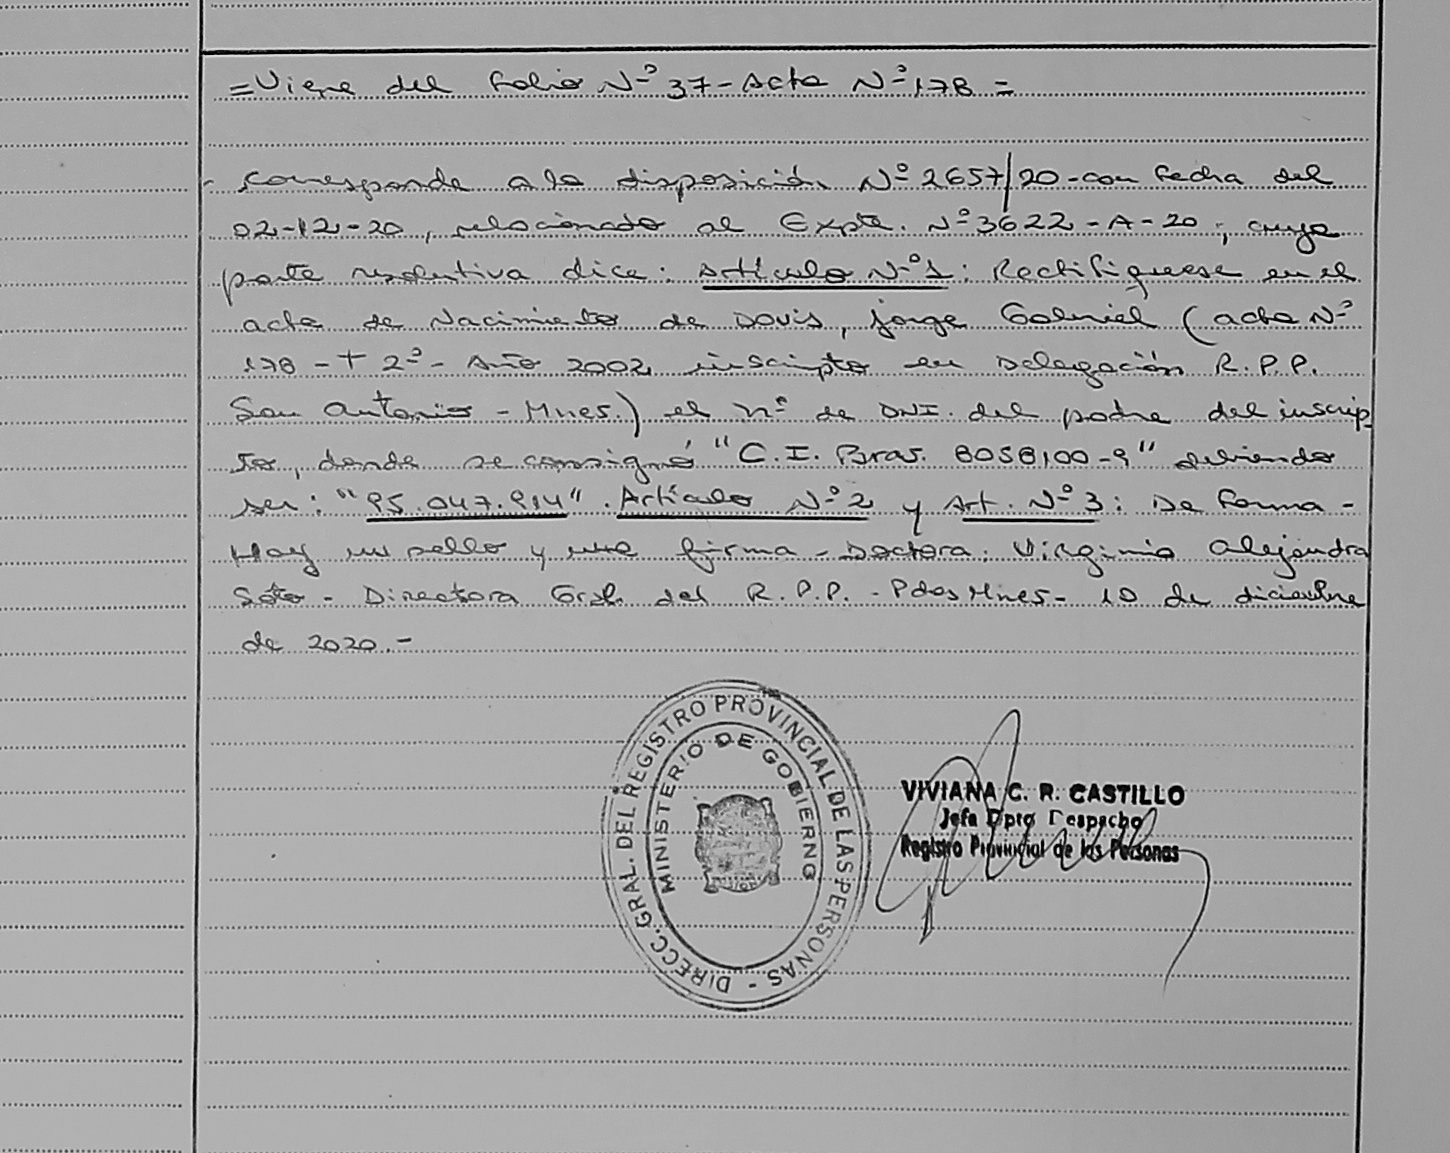 =Viene del folio Nº 37-Acta Nº 178=
- Corresponde a la disposición Nº 2657/20-con fecha del
02-12-20, relacionado al Expte. Nº 3622-A-20; cuya
parte resolutiva dice: Artículo Nº1: Rectifiquese en el
acta de Nacimiento de Dovis, Jorge Gabriel (acta Nº
178-Tº 2º- Año 2002 inscripto en Delegación R.P.P.
San Antonio - Mnes.) el nº de DNI. del padre del inscrip-
to, donde se consignó "C.I. Bras. 8058100-9" debiendo
ser: "95.047.914". Artículo Nº2 y Art. Nº3: De forma-
Hay un sello y una firma - Doctora. Virginia Alejandra
Soto - Directora Gral. del R.P.P. - Pdas Mnes- 10 de diciembre
de 2020.-
DIRECC. GRAL. DEL REGISTRO PROVINCIAL DE LAS PERSONAS -
MINISTERIO DE GOBIERNO
VIVIANA C. R. CASTILLO
Jefa Dpto Despacho
Registro Provincial de las Personas